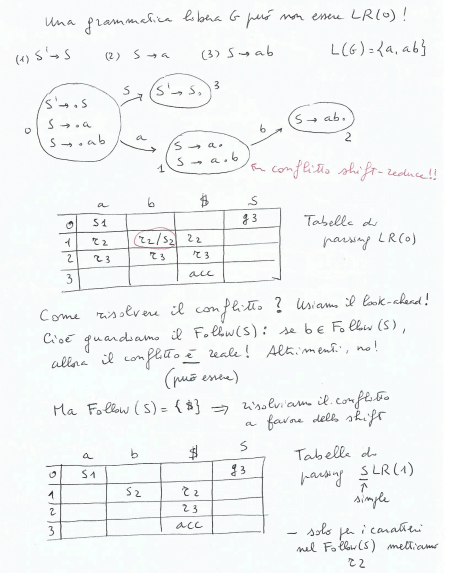 Una grammatica libera G può non essere LR(0)!
(1) S' → S (2) S → a (3) S → ab L(G) = {a, ab}
S' → .S
S → .a
S → .ab
0
S
S' → S.
3
a
S → a.
S → a.b
1
b
S → ab.
2
← conflitto shift-reduce!!
a b $ S
0 S1 g3
1 r2 r2/S2 r2
2 r3 r3 r3
3 acc
Tabella di
parsing LR(0)
Come risolvere il conflitto? Usiamo il look-ahead!
Cioè guardiamo il Follow(S): se b ∈ Follow(S),
allora il conflitto è reale! Altrimenti, no!
(può essere)
Ma Follow(S) = {$} ⇒ risolviamo il conflitto
a favore dello shift
a b $ S
0 S1 g3
1 S2 r2
2 r3
3 acc
Tabella di
parsing SLR(1)
↑
simple
– solo per i caratteri
nel Follow(S) mettiamo
r2